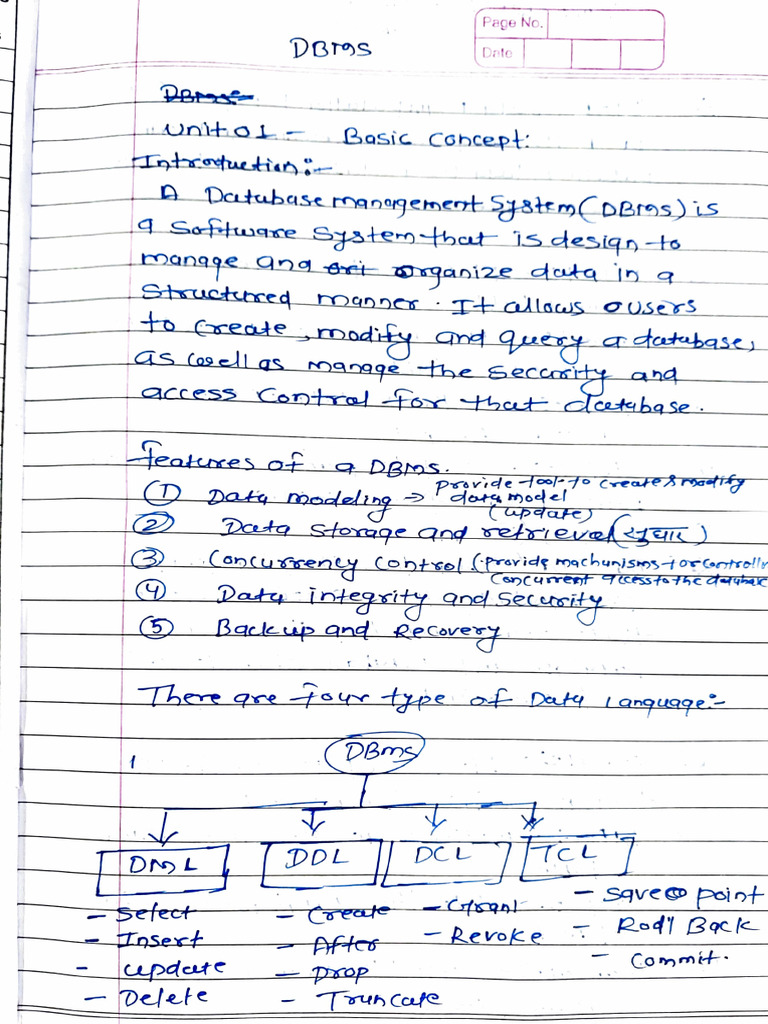 DBMS
Page No.
Date
DBMS:-
Unit 01 - Basic Concept:
Introduction:-
A Database management System (DBMS) is
a software system that is design to
manage and ori organize data in a
structured manner. It allows users
to create, modify and query a database,
as well as manage the seccurity and
access control for that database.
Features of a DBMS.
① Data modeling → provide tool to create & modify
data model
(update)
② Data storage and retrieval (सुधार)
③ Concurrency control (provide machunisms for controlli
concurrent access to the database
④ Data integrity and security
⑤ Backup and Recovery
There are four type of Data Language:-
DBMS
DML DDL DCL TCL
- Select - Create - Grant - Save point
- Insert - After - Revoke - Roll Back
- update - Drop - Commit.
- Delete - Truncate